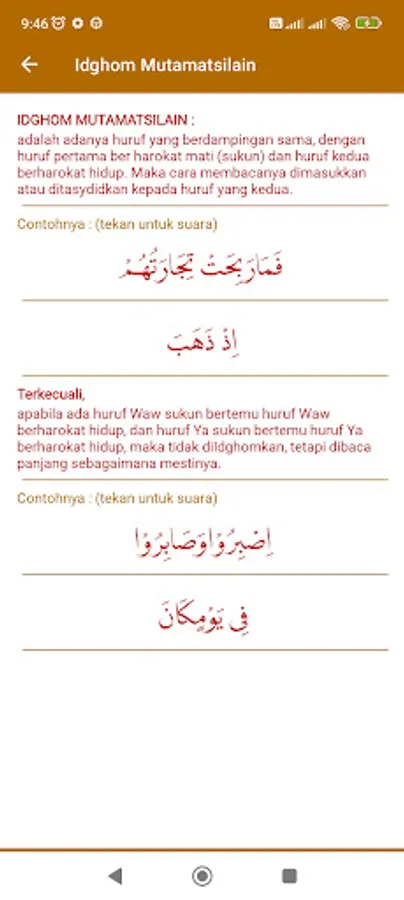 9:46
Idghom Mutamatsilain
IDGHOM MUTAMATSILAIN :
adalah adanya huruf yang berdampingan sama, dengan
huruf pertama ber harokat mati (sukun) dan huruf kedua
berharokat hidup. Maka cara membacanya dimasukkan
atau ditasydidkan kepada huruf yang kedua.
Contohnya : (tekan untuk suara)
فَمَارَبِحَتْ تِجَارَتُهُمْ
اِذْ ذَهَبَ
Terkecuali,
apabila ada huruf Waw sukun bertemu huruf Waw
berharokat hidup, dan huruf Ya sukun bertemu huruf Ya
berharokat hidup, maka tidak diIdghomkan, tetapi dibaca
panjang sebagaimana mestinya.
Contohnya : (tekan untuk suara)
اِصْبِرُوْاوَصَابِرُوْا
فِى يَوْمٍكَانَ